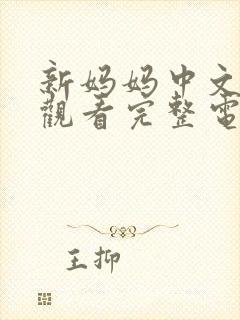 新妈妈中文
觀看完整電
王抑